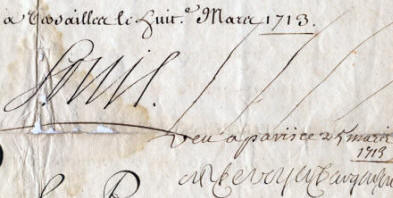 à Versailles le huit.e Mars 1713.
Louis.
Veu a paris ce 25 mars
1713